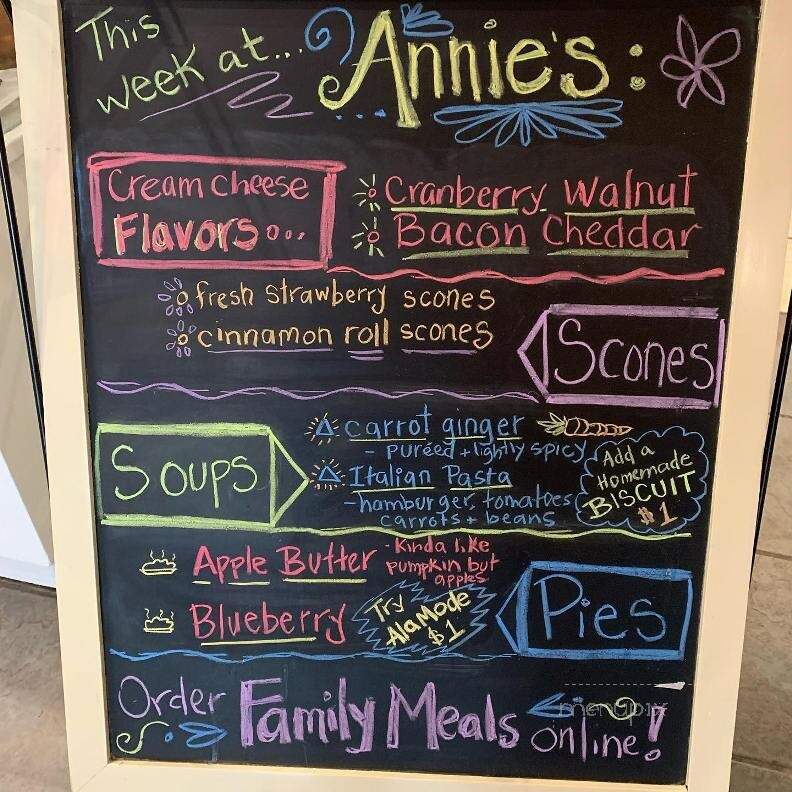 This
week at... Annie's:
Cream cheese
Flavors...
Cranberry Walnut
Bacon Cheddar
fresh strawberry scones
cinnamon roll scones
Scones
Soups
carrot ginger
- puréed + lightly spicy
Italian Pasta
- hamburger, tomatoes
carrots + beans
Add a
Homemade
BISCUIT
$1
Apple Butter
- Kinda like
pumpkin but
apples
Blueberry
Try
AlaMode
$1
Pies
Order Family Meals online!
menupix